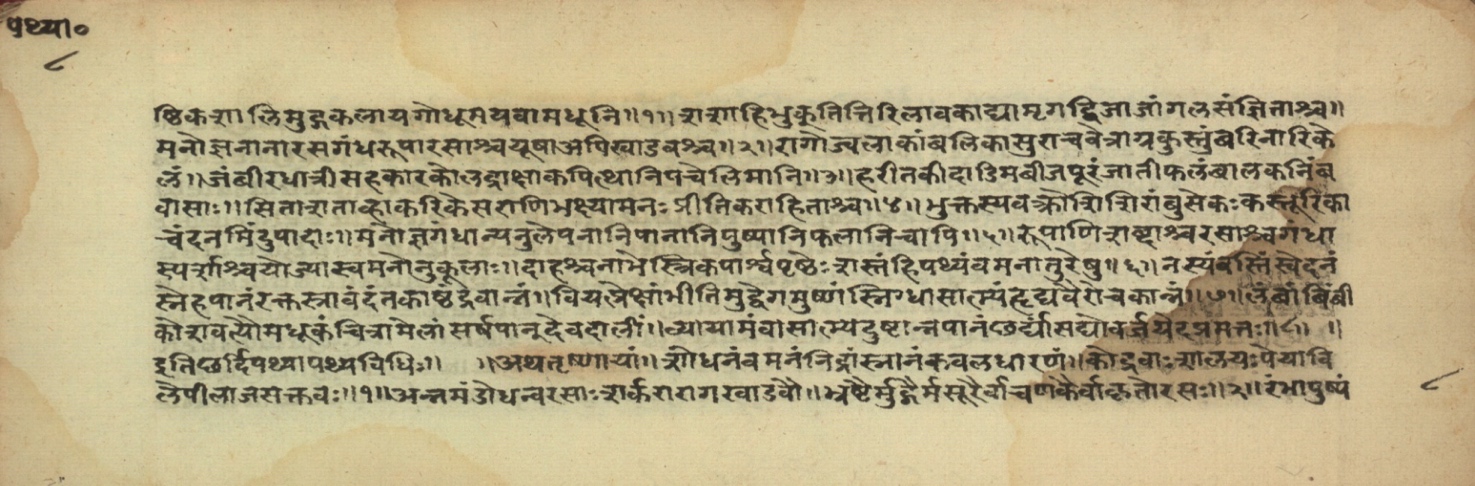 पथ्या०
८
ष्टिकशालिमुद्गकलायगोधूमयवामधूनि॥१॥शशाहिभुक्तित्तिरिलावकाद्यामृगद्विजाजांगलसंज्ञिताश्च॥
मनोज्ञनानारसगंधरूपारसाश्चयूषाअपिखाडवश्च॥२॥रागोज्वलाकांबलिकासुराचवेत्राग्रकुस्तुंबरिनारिके
लं॥जंबीरधात्रीसहकारकोलद्राक्षाकपित्थानिपचेलिमानि॥३॥हरीतकीदाडिमबीजपूरंजातीफलंबालकनिंब
वासाः॥सिताशताव्हाकरिकेसराणिभक्ष्यामनःप्रीतिकराहिताश्च॥४॥भुक्तस्यवक्रेशिशिरांबुसेकःकस्तूरिका
चंदनमिंदुपादाः॥मनोज्ञगंधान्यनुलेपनानिपानानिपुष्पानिफलानिचापि॥५॥रूपाणिशब्दाश्चरसाश्चगंधा
स्पर्शाश्चयोज्यास्वमनोनुकूलाः॥दाहश्चनाभेस्त्रिकपार्श्वपृष्ठेःशस्तंहिपथ्यंवमनातुरेषु॥६॥नस्यंबस्तिंस्वेदनं
स्नेहपानंरक्तस्रावंदंतकाष्ठंद्रवान्नं॥बिभत्सेक्षांभीतिमुद्वेगमुष्णंस्निग्धासात्म्यंहृद्यवैरोचकान्नं॥७॥लंबांबिंबी
कोशवत्यौमधूकंचित्रामेलांसर्षपान्देवदालीं॥व्यायामंवासात्म्यदुष्टान्नपानंछर्द्यांसद्योवर्जयेदप्रमत्तः॥८॥ ॥
इतिछर्दिपथ्यापथ्यविधिः॥ ॥अथतृष्णायां॥शोधनंवमनंनिद्रांस्नानंकवलधारणं॥कोद्रवाःशालयःपेयावि
लेपीलाजसक्तवः॥१॥अन्नमंडोधन्वरसाःशर्करारागखाडवौ॥भ्रष्टैर्मुद्गैर्मसूरैर्वाचणकैर्वाकृतोरसः॥२॥रंभापुष्पं
८